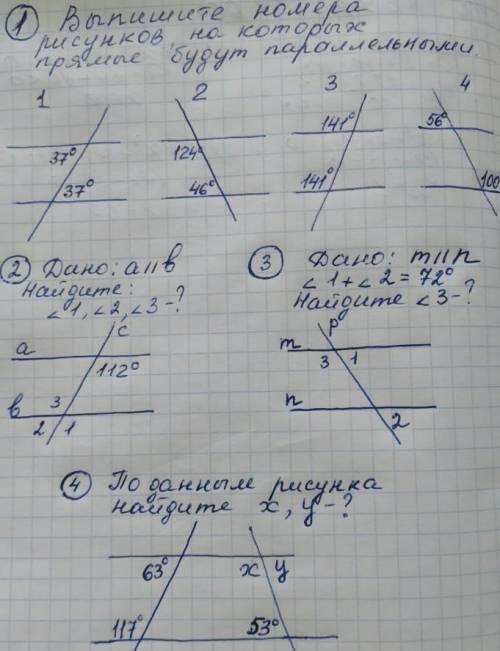 1 Выпишите номера
рисунков, на которых
прямые будут параллельными.
1 2 3 4
37° 124° 141° 56°
37° 46° 141° 100
2 Дано: a||в
Найдите:
∠1, ∠2, ∠3-?
c
a
112°
в 3
2 1
3 Дано: m||n
∠1+∠2=72°
Найдите ∠3-?
p
m
3 1
n
2
4 По данным рисунка
найдите x, y-?
63° x y
117° 53°